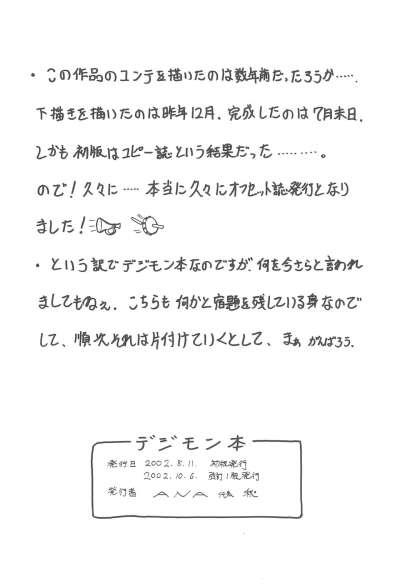 ・この作品のコンテを描いたのは数年前だったろうか‥‥‥.
下描きを描いたのは昨年12月．完成したのは7月末日．
しかも初版はコピー誌という結果だった‥‥‥‥。
ので！久々に‥‥‥本当に久々にオフセット誌発行となり
ました！
・という訳でデジモン本なのですが、何を今さらと言われ
ましてもねぇ．こちらも何かと宿題を残している身なので
して、順次それは片付けていくとして、まぁ がんばろう．
デジモン本
発行日 2002.8.11. 初版発行
2002.10.6. 改訂1版発行
発行者 ANA 代表